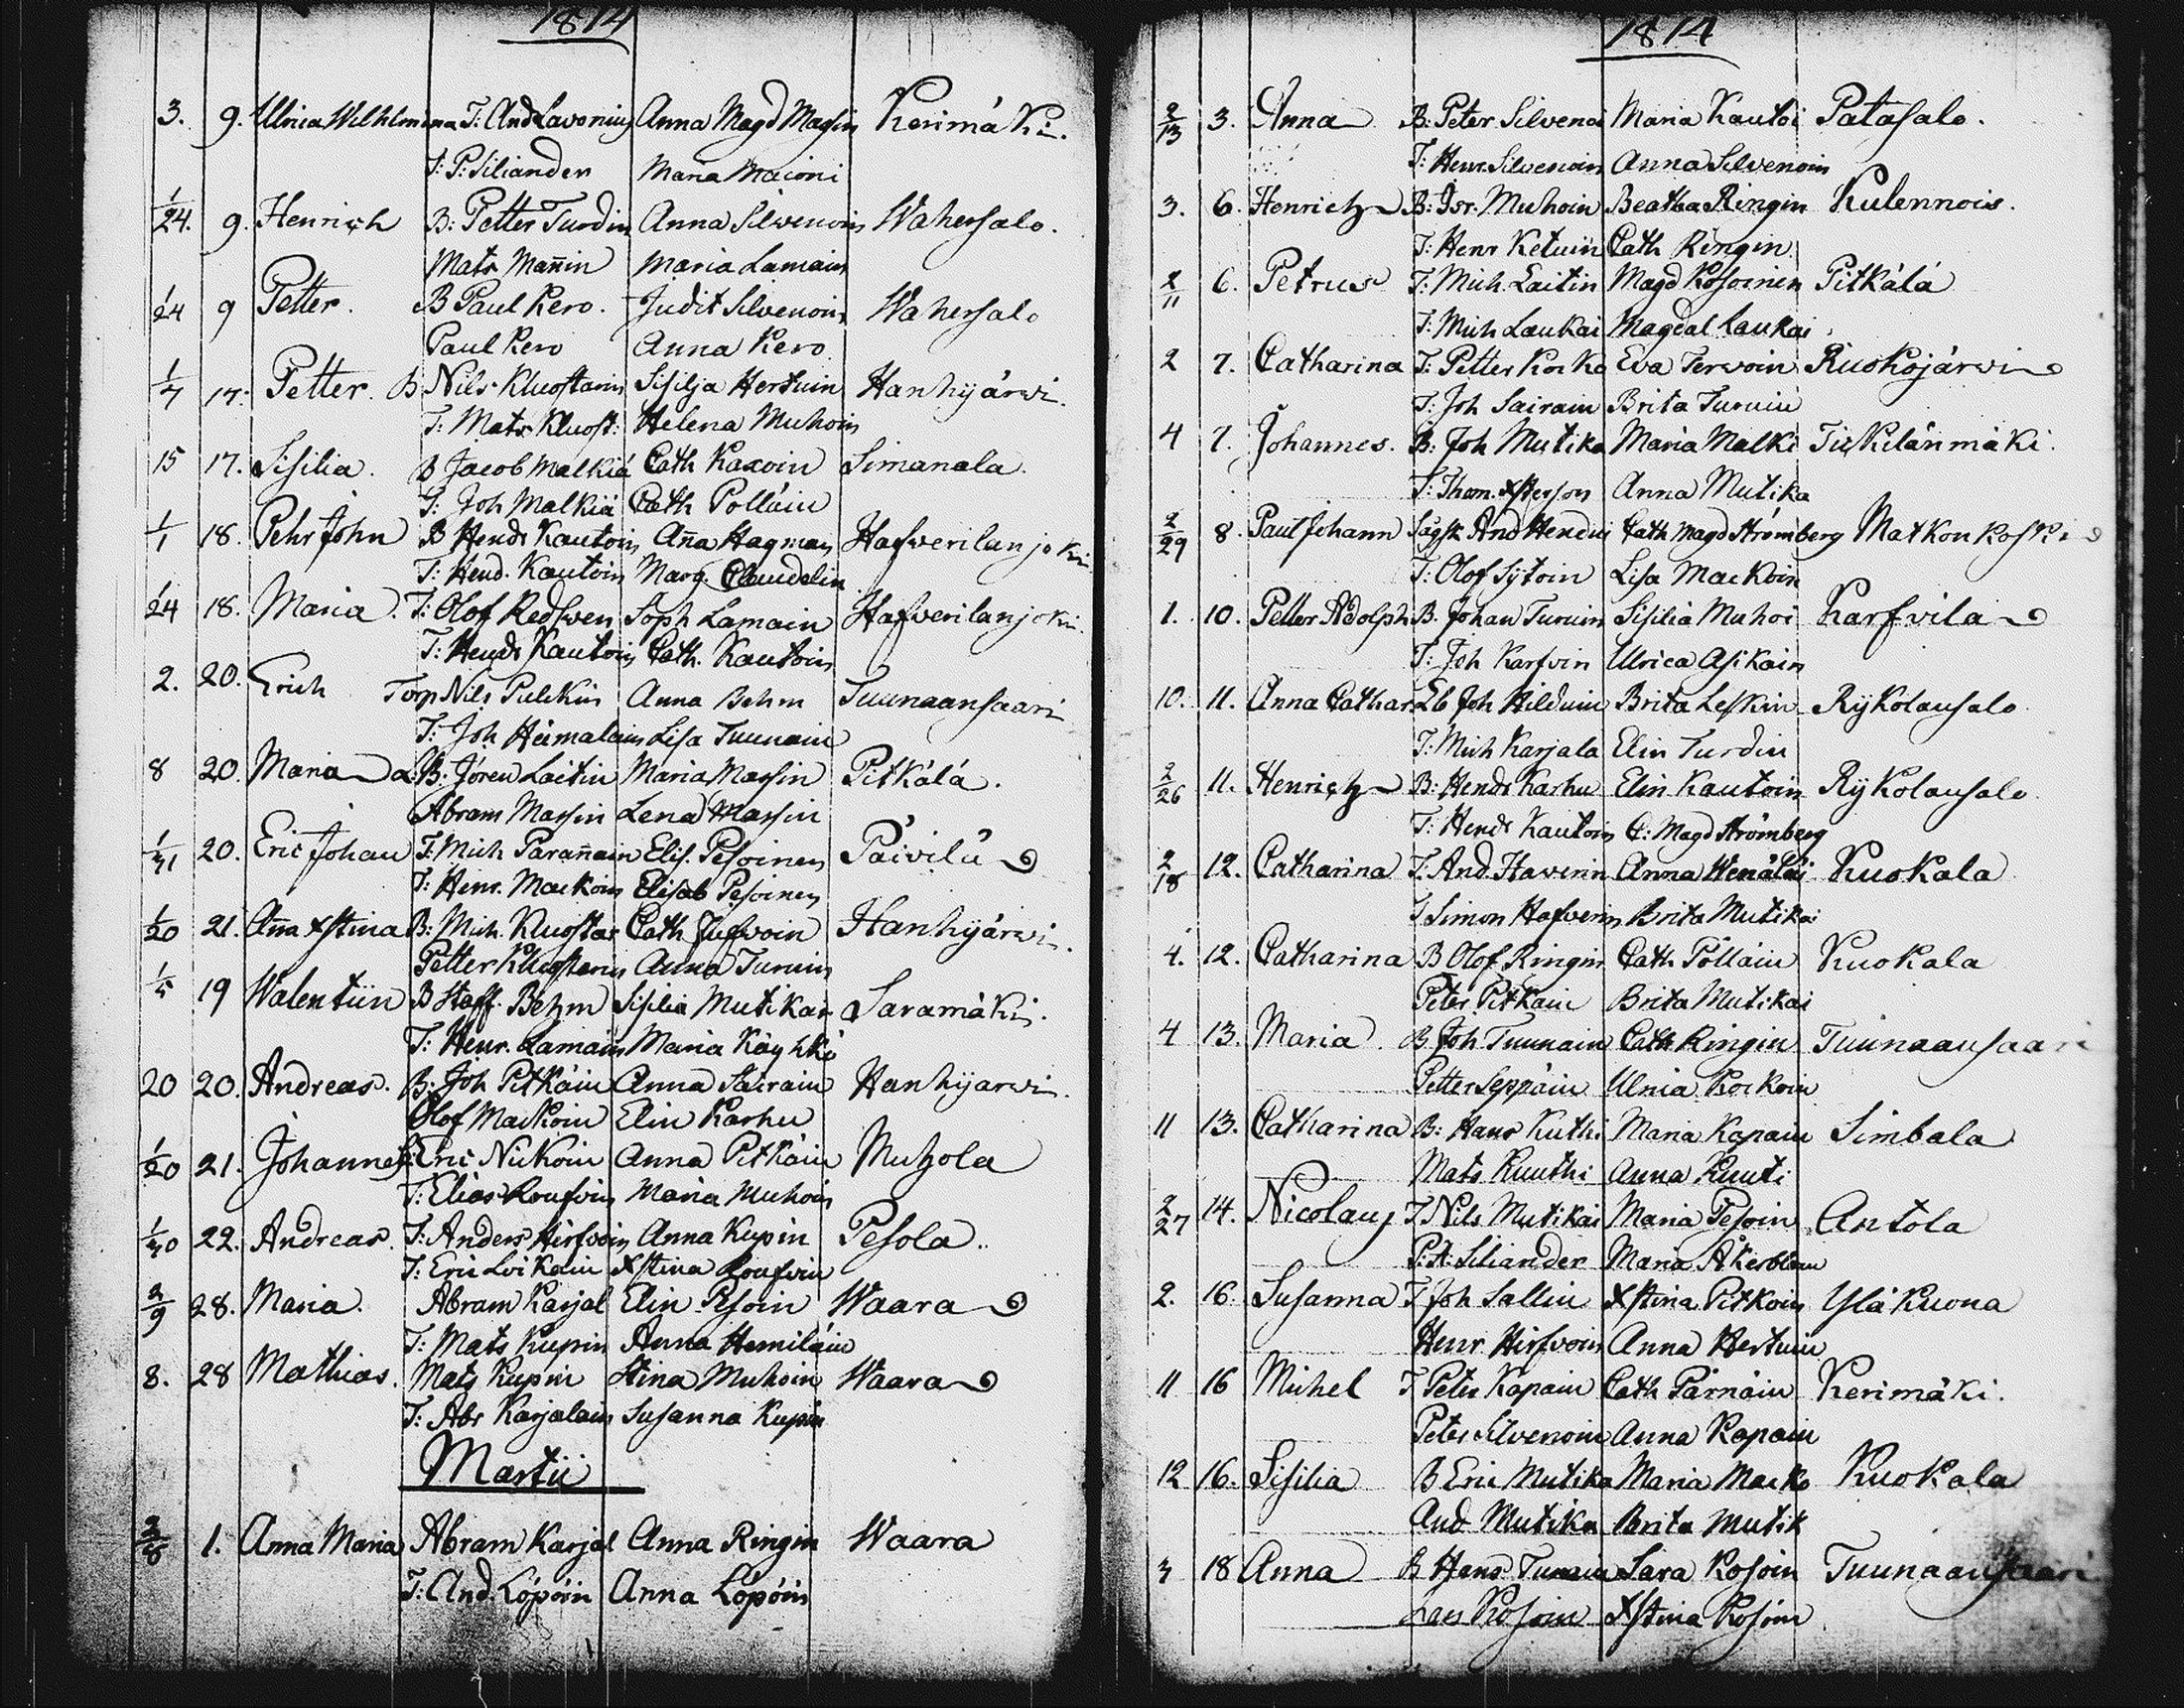 1814
3. 9. Ulrica Wilhlmina T: And Lavonius Anna Magd Masin Kerimäki.
T: P: Siliander Maria Maioni
1/24. 9. Henrich B: Petter Turdin Anna Silvenoin Wahersalo.
Mats Mañin Maria Lamain
1/24 9 Petter. B Paul Kero. Judit Silvenoin Wahersalo
Paul Kero Anna Kero.
1/7 17. Petter. B Nils Kluostarin Sisilja Hertuin Hanhijärwi.
T: Mats Kluost: Helena Muhoin
15 17. Sisilia. B Jacob Malkiä Cath Kaxoin Simanala.
T: Joh Malkiä Cath Polläin
1/1 18. Pehr John B Hendr Kautoin Aña Hagman Hafverilanjoki
T: Hend. Kautoin Marg. Claudelin
1/24 18. Maria. T: Olof Redsven Soph Lamain Hafverilanjoki.
T: Hendr Kautoin Cath. Kautoin
2. 20. Erich Torp Nils Pulckin Anna Behm Tuunaansaari
T: Joh Heimalain Lisa Tuunain
8 20. Maria B: Jören Laitin Maria Massin Pitkälä.
Abram Massin Lena Massin
1/31 20. Eric Johan T: Mich Parañain Elis. Pesoinen Päivilä
T: Henr. Mackoin Elisab Pesoinen
1/20 21. Aña Xstina B: Mich. Kluostar Cath Jufvoin Hanhijärwi.
Petter Kluostarin Anna Turuin
1/5 19 Walentiin B Staff. Behm Sisilia Mutikai Saramäki.
T: Henr. Lamain Maria Käyhkö
20 20. Andreas. B: Joh Pitkäin Anna Sairain Hanhijarwi.
Olof Mackoin Elin Karhu
1/20 21. Johannes T: Eric Nickoin Anna Pitkäin Muhola
T: Elias Roufvin Maria Muhoin
1/30 22. Andreas. T: Anders Hirfvoin Anna Kupin Pesola.
T: Eric Loikain Xstina Roufvin
2/9 28. Maria. Abram Karjal Elin Pesoin Waara
T: Mats Kupin Anna Hemiläin
8. 28 Mathias. Mats Kupin Stina Muhoin Waara
T: Abr Karjalain Susanna Kupin
Martii
2/8 1. Anna Maria Abram Karjal Anna Ringin Waara
T: And. Löpöin Anna Löpöin
1814
2/13 3. Anna B: Peter Silvenoi Maria Kautoi Patasalo.
T: Henr. Silvenoin Anna Silvenoin
3. 6. Henrich B: Isr. Muhoin Beatha Ringin Kulennois.
T: Henr Ketuin Cath Ringin
2/11 6. Petrus T: Mich. Laitin Magd Kosoinen Pitkälä
T: Mich Laukai Magdal Laukai
2 7. Catharina T: Petter Kocko Eva Tervoin Ruokojärwi
T: Joh Sairain Brita Turuin
4 7. Johannes. B: Joh Mutika Maria Malki Tuckilänmäki.
T: Thom. Xsterson Anna Mutika
2/29 8. Paul Johann Sågsk And Hendui Cath Magd Strömberg Matkonkoski
T: Olof Sytoin Lisa Mackoin
1. 10. Petter Adolph B. Johan Turuin Sisilia Muhoi Karfvila
T: Joh Karfvin Ulrica Asikain
10. 11. Anna Cathar Lb Joh Hilduin Brita Leskin Rykolansalo
T: Mich Karjala Elin Turdin
2/26 11. Henrich B: Hendr Karhu Elin Kautoin Rykolansalo
T: Hendr Kautoin C: Magd Strömberg
2/18 12. Catharina T. And. Hawerin Anna Wenäläi Kuokala
T Simon Hafverin Brita Mutikai
4. 12. Catharina B Olof Ringin Cath Pölläin Kuokala
Peter Pitkain Brita Mutikai
4 13. Maria. B Joh Tuunain Cath Ringin Tuunaansaari
Petter Seppäin Ulrica Kockoin
11 13. Catharina B: Hans Kuthi Maria Kapain Simbala
Mats Kuuthi Anna Kuuti
2/27 14. Nicolaus T Nils Mutikai Maria Pesoin Antola
P: A: Siliander Maria Åkerblom
2. 16. Susanna T Joh Sallin Xstina Pitkoin Ylä Kuona
Henr Hirfvoin Anna Hertuin
11 16 Michel T Peter Kapain Cath Pärnäin Kerimäki.
Peter Silvenoin Anna Kapain
12 16. Sisilia B Eric Mutika Maria Macko Kuokala
And Mutika Brita Mutik
3 18 Anna B Hans Tunain Sara Kosoin Tuunaansaari
Lars Kosoin Xstina Kosoin